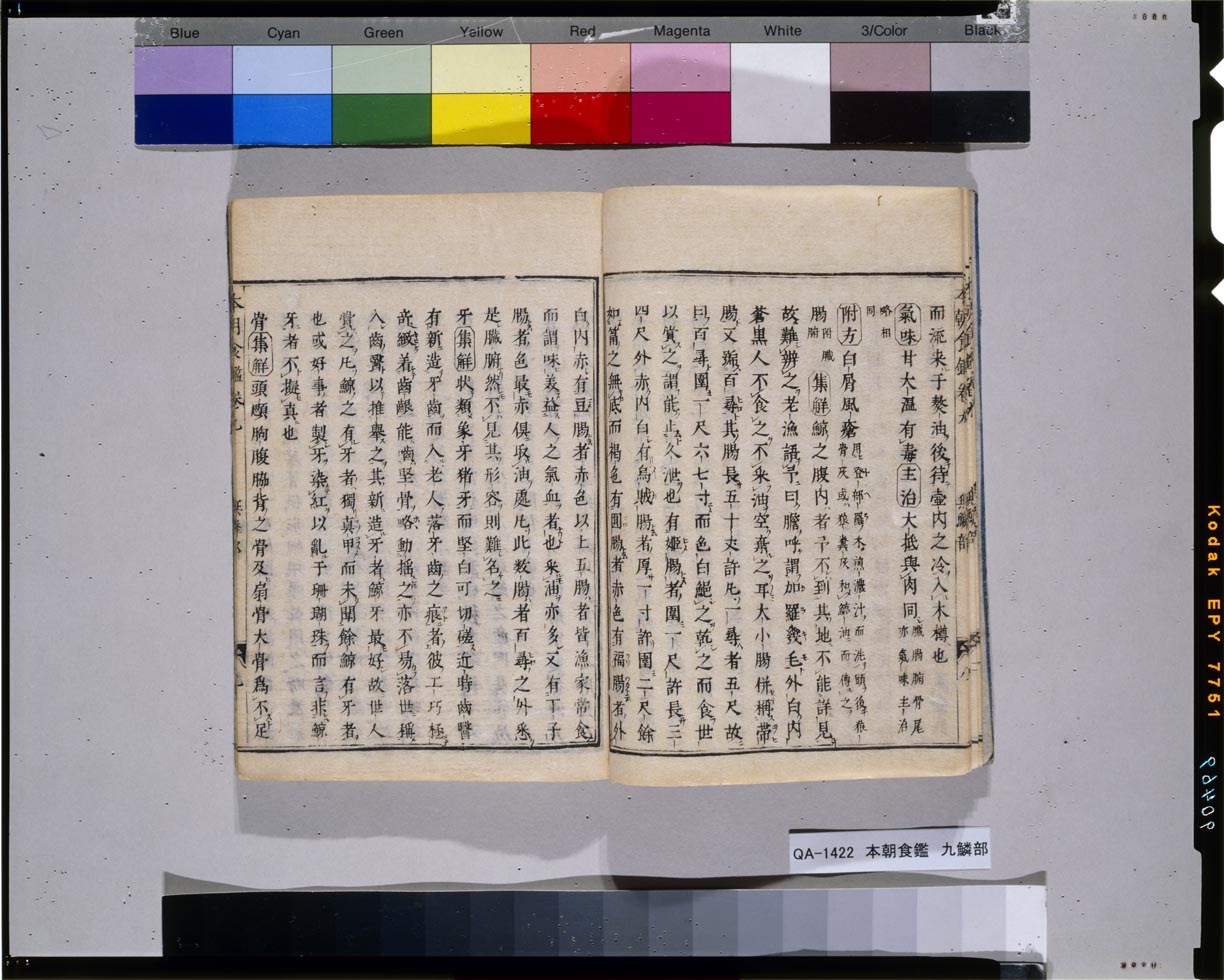 Blue Cyan Green Yellow Red Magenta White 3/Color Black
而流来于熬油後待壷内之冷入木樽也
氣味甘大温有毒主治大抵與肉同臓腑腸骨尾亦氣味主治
略相同
附方白屑風瘡
腸附臓腑集解鯨之腹内者予不到其地不能詳見
故難辨之老漁語予曰膽呼謂加羅幾毛外白内
蒼黒人不食之不采油空棄之耳大小腸併稱帶
腸又號百尋其腸長五十丈許凡一尋者五尺故
曰百尋圍一尺六七寸而色白鮑之乾之而食世
以賞之謂能止久泄也有姫腸者圍一尺許長三
四尺外赤内白有烏賊腸者厚一寸許圍二尺餘
如筒之無底而褐色有圓腸者赤色有福腸者外
白内赤有豆腸者赤色以上五腸者皆漁家常食
而謂味美益人之氣血者也采油亦多又有丁子
腸者色最赤俱取油處凡此数腸者百尋之外悉
是臓腑然不見其形容則難名之
牙集解状類象牙猪牙而堅白可切磋近時齒醫
有新造牙齒而入老人落牙齒之痕者彼工巧極
奇緻着齒齦能齒堅骨略動揺之亦不易落世稱
入齒醫以推擧之其新造牙者鯨牙最好故世人
賞之凡鯨之有牙者獨真甲而未聞餘鯨有牙者
也或好事者製牙染紅以亂于珊瑚珠而言非鯨
牙者不擬真也
骨集解頭頤胸腹脇背之骨及扇骨大骨為不足
本朝食鑑卷九
QA-1422 本朝食鑑 九鱗部
Kodak EPY 7751